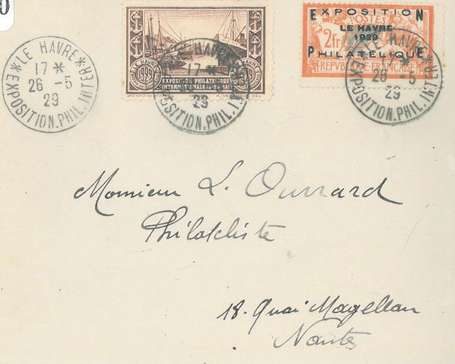 LE HAVRE
17 *
26 - 5
29
EXPOSITION.PHIL.INTER
EXPOSITION PHILATÉLIQUE
INTERNATIONALE
LE HAVRE
17 *
29
EXPOSITION.PHIL.INT
EXPOSITION
LE HAVRE
1929
PHILATELIQUE
2fr
REPUBLIQUE FRANÇAISE
LE HAVRE
26 - 5
29
EXPOSITION.PHIL.INTER
Monsieur L. Ouvrard
Philatéliste
18. Quai Magellan
Nantes